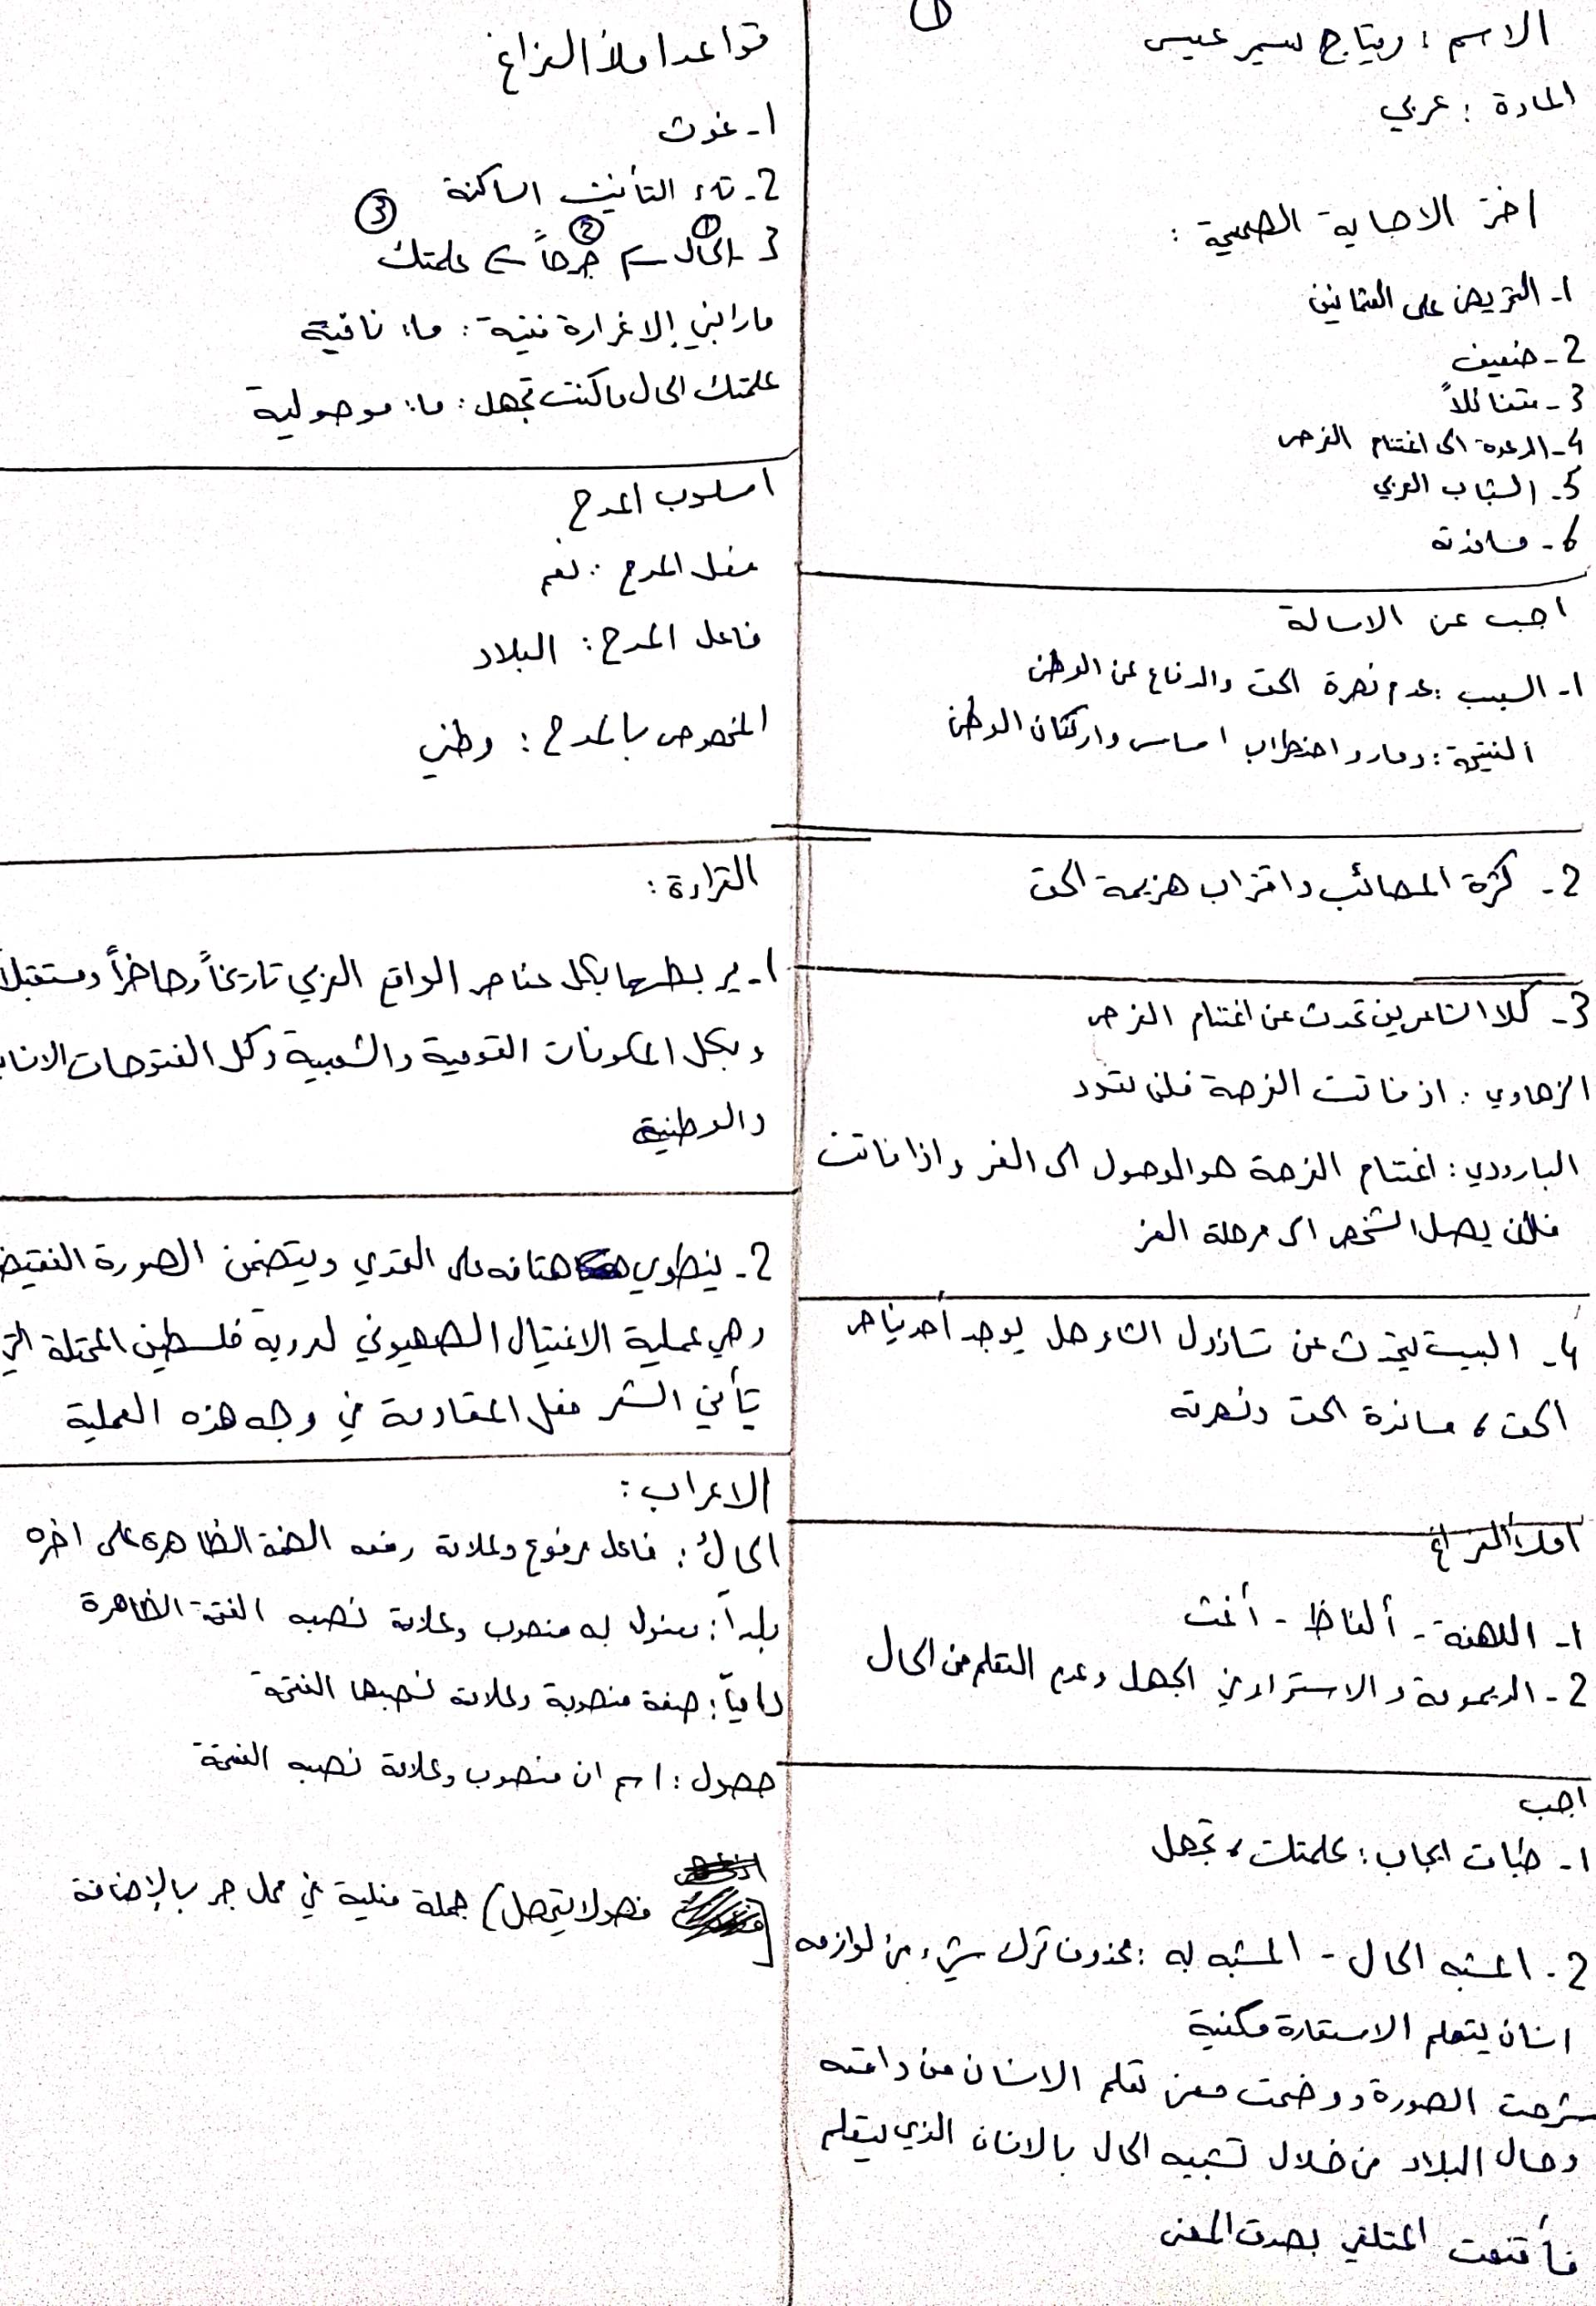 ①
الاسم : ريتاج سمير عيسى
المادة : عربي
اختر الاجابة الصحيحة :
1- التحريض على العثمانين
2- ضعيف
3- متفائلاً
4- الدعوة الى اغتنام الفرص
5- الشباب العربي
6- مساندته
اجب عن الاسالة
1- السبب : عدم نصرة الحق والدفاع عن الوطن
النتيجة : دمار واضطراب اساس واركان الوطن
2- كثرة المصائب واقتراب هزيمة الحق
3- كلا الشاعرين تحدث عن اغتنام الفرص
الزهاوي : اذ فاتت الفرصة فلن تعود
البارودي : اغتنام الفرصة هو الوصول الى العز واذا فاتت
فلن يصل الشخص الى مرحلة العز
4- البيت يتحدث عن تساؤول الشاعر هل يوجد أحد يناصر
الحق ، مساندة الحق ونصرته
املأ الفراغ
1- اللهفة - ألفاظ - أغث
2- الديمومة والاسترار في الجهل وعدم التعلم من الحال
اجب
1- طباق ايجاب : علمتك ، تجهل
2- المشبه الحال - المشبه به : محذوف ترك شيء من لوازمه
انسان يتعلم الاستعارة مكنية
شرحت الصورة ووضحت معنى تعلم الانسان من واقعه
وحال البلاد من خلال تشبيه الحال بالانسان الذي يتعلم
فأقنعت المتلقي بصدق المعنى
قواعد املأ الفراغ
1- غوث
2- تاء التأنيث الساكنة
① ② ③
3- الحال ← جرحاً ← علمتك
ما رابني إلا غرارة فتية : ما : نافية
علمتك الحال ما كنت تجهل : ما : موصولية
اسلوب المدح
فعل المدح : نعم
فاعل المدح : البلاد
المخصوص بالمدح : وطني
القراءة :
1- يربطها بكل عناصر الواقع العربي تاريخاً وحاضراً ومستقبلاً
وبكل المكونات القومية والشعبية وكل الفتوحات
والوطنية
2- ينطوي هتافه على التحدي ويتضمن الصورة النقيض
وهي عملية الاغتيال الصهيوني لعروبة فلسطين المحتلة التي
يتأتي الشعر فعل المقاومة في وجه هذه العملية
الاعراب :
الحالُ : فاعل مرفوع وعلامة رفعه الضمة الظاهرة على اخره
بلداً : مفعول به منصوب وعلامة نصبه الفتحة الظاهرة
دامياً : صفة منصوبة وعلامة نصبها الفتحة
حصول : اسم ان منصوب وعلامة نصبه الفتحة
[ فهو لا يتحصل ) جملة فعلية في محل جر بالإضافة